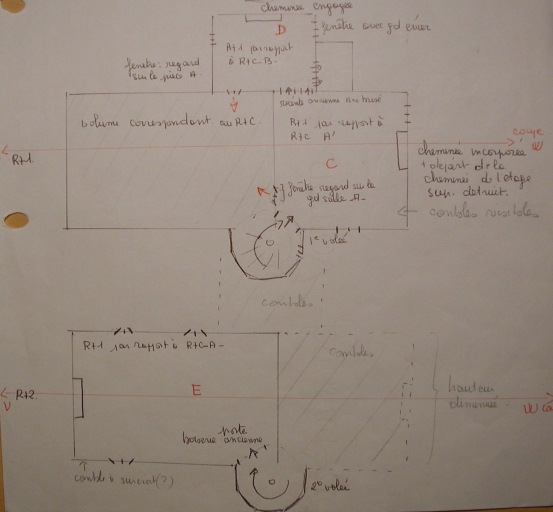 cheminée engagée
D
R+1 par rapport
à R+C-B.
fenêtre avec gd évier
fenêtre: regard
sur la pièce A.
volume correspondant au R+C
R+1 par rapport à
R+C A'
C
R+1
coupe
cheminée incorporée
+ départ de la
cheminée de l'étage
sup. détruit.
fenêtre regard sur la
gd salle A-
combles visibles
1e volée
combles
R+1 par rapport à R+C-A-
combles
R+2
E
V
hauteur
diminuée
porte
ancienne
comble à surcroit (?)
2e volée